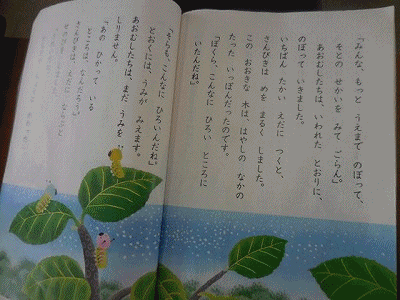 「みんな、もっと うえまで のぼって、
そとの せかいを みて ごらん。」
あおむしたちは、いわれた とおりに、
のぼって いきました。
いちばん たかい えだに つくと、
さんびきは めを まるく しました。
この おおきな 木は、はやしの なかの
たった いっぽんだったのです。
「ぼくら、こんなに ひろい ところに
いたんだね。」
「そらも、こんなに ひろいんだね。」
とおくには、うみが みえます。
あおむしたちは、まだ うみを
しりません。
「あの ひかって いる
ところは、なんだろう。」
さんびきは、えだに ならぶと